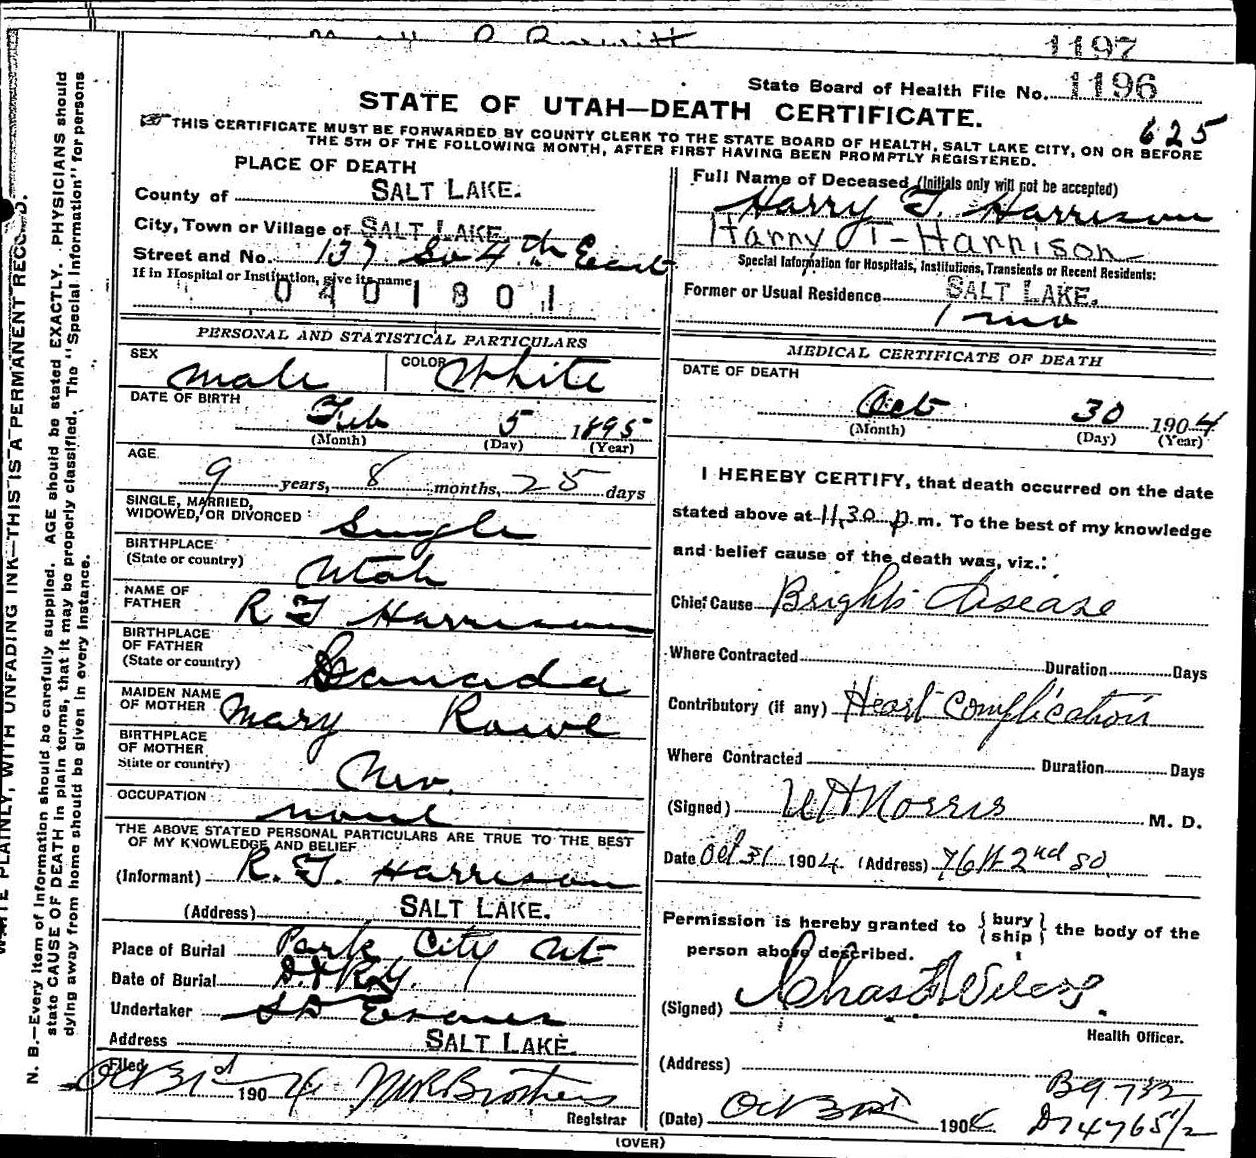 1197
State Board of Health File No. 1196
STATE OF UTAH—DEATH CERTIFICATE.
625
THIS CERTIFICATE MUST BE FORWARDED BY COUNTY CLERK TO THE STATE BOARD OF HEALTH, SALT LAKE CITY, ON OR BEFORE
THE 5TH OF THE FOLLOWING MONTH, AFTER FIRST HAVING BEEN PROMPTLY REGISTERED.
PLACE OF DEATH
County of SALT LAKE.
City, Town or Village of SALT LAKE
Street and No. 137 So 4th East
If in Hospital or Institution, give its name
0401801
PERSONAL AND STATISTICAL PARTICULARS
SEX male COLOR White
DATE OF BIRTH
Feb 5 1895
(Month) (Day) (Year)
AGE
9 years, 8 months, 25 days
SINGLE, MARRIED,
WIDOWED, OR DIVORCED Single
BIRTHPLACE
(State or country) Utah
NAME OF
FATHER R T Harrison
BIRTHPLACE
OF FATHER
(State or country) Canada
MAIDEN NAME
OF MOTHER Mary Rowe
BIRTHPLACE
OF MOTHER
State or country) Nev.
OCCUPATION
none
THE ABOVE STATED PERSONAL PARTICULARS ARE TRUE TO THE BEST
OF MY KNOWLEDGE AND BELIEF
(Informant) R. T. Harrison
(Address) SALT LAKE.
Place of Burial Park City Ut
Date of Burial
Undertaker S D Evans
Address SALT LAKE.
Filed
Oct 31st 1904
Registrar
Full Name of Deceased (Initials only will not be accepted)
Harry T. Harrison
Harry T-Harrison
Special Information for Hospitals, Institutions, Transients or Recent Residents:
Former or Usual Residence SALT LAKE.
1 mo
MEDICAL CERTIFICATE OF DEATH
DATE OF DEATH
Oct 30 1904
(Month) (Day) (Year)
I HEREBY CERTIFY, that death occurred on the date
stated above at 11.30 p m. To the best of my knowledge
and belief cause of the death was, viz.:
Chief Cause Brights Disease
Where Contracted Duration Days
Contributory (if any) Heart Complication
Where Contracted Duration Days
(Signed) W H Norris M. D.
Date Oct 31 1904. (Address) 76 W 2nd So.
Permission is hereby granted to { bury } the body of the
{ ship }
person above described.
(Signed)
Health Officer.
(Address)
B9732
(Date) Oct 31st 1904
D74765 1/2
(OVER)
WRITE PLAINLY, WITH UNFADING INK—THIS IS A PERMANENT RECORD.
N. B.—Every item of information should be carefully supplied. AGE should be stated EXACTLY. PHYSICIANS should
state CAUSE OF DEATH in plain terms, that it may be properly classified. The "Special Information" for persons
dying away from home should be given in every instance.